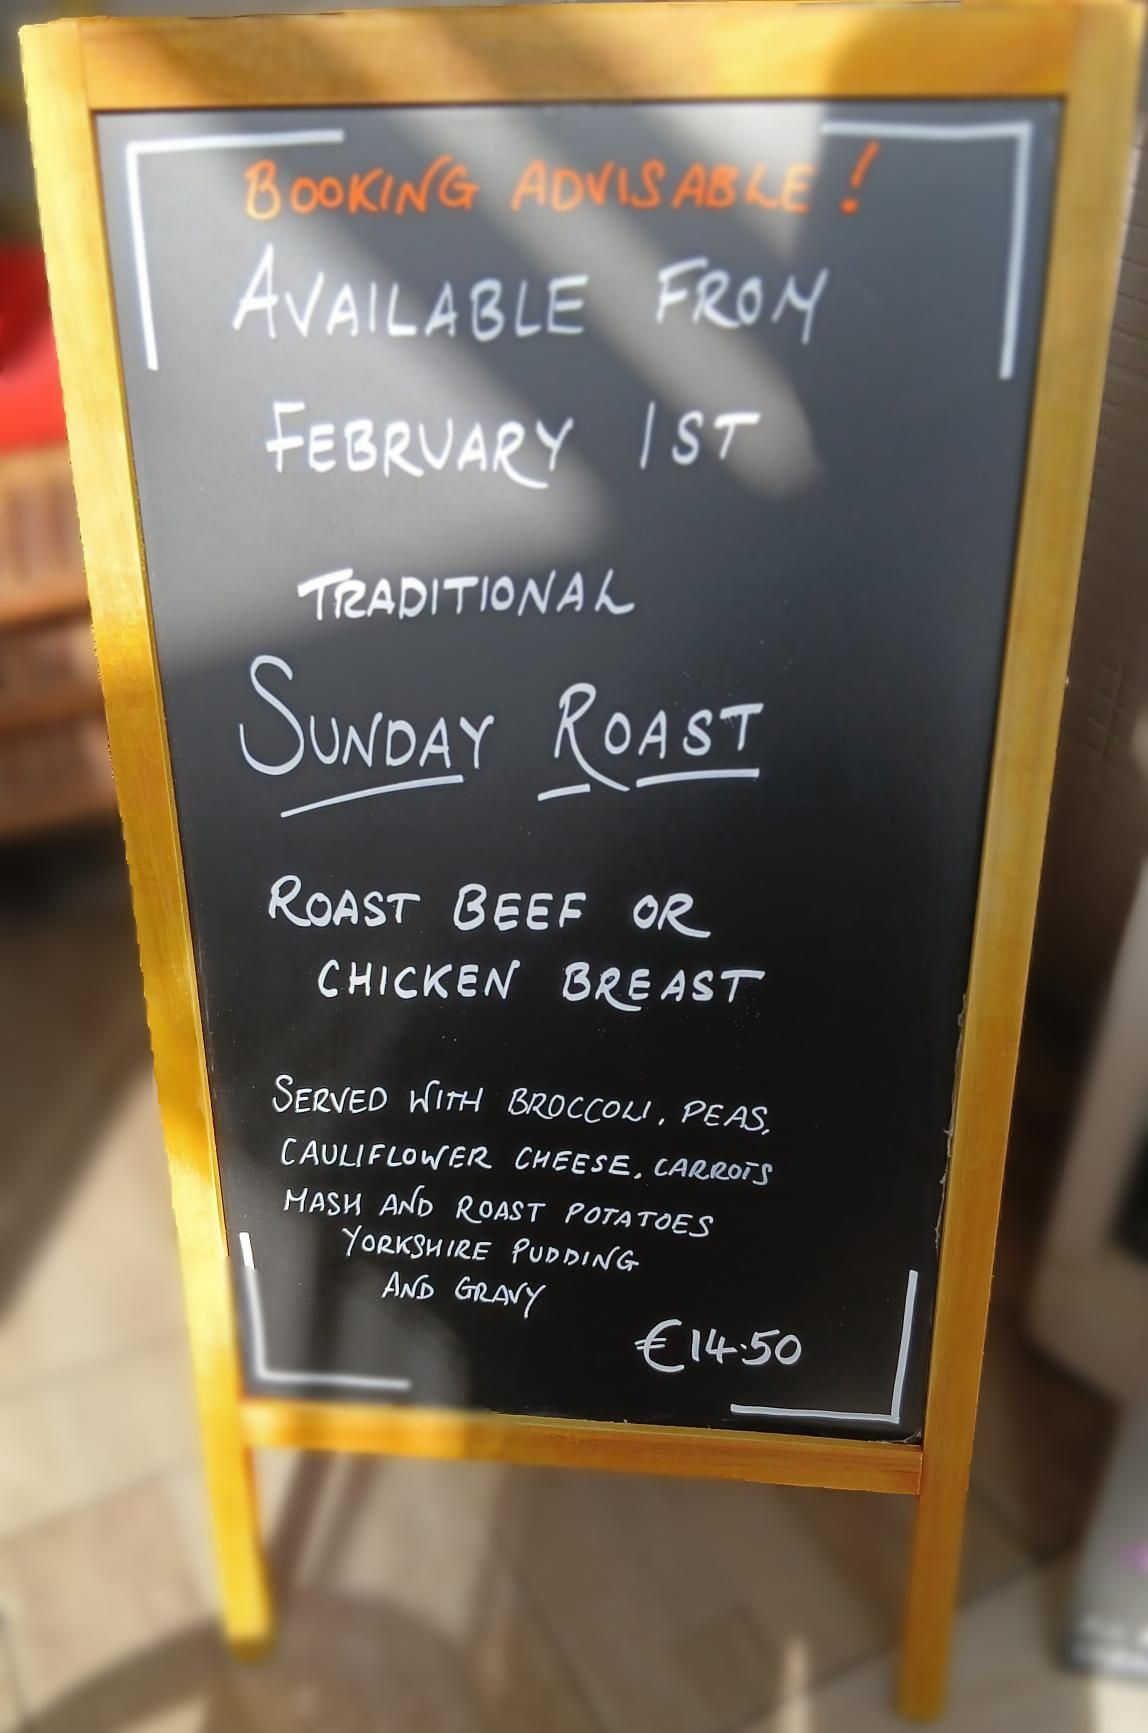 BOOKING ADVISABLE!
AVAILABLE FROM
FEBRUARY 1ST
TRADITIONAL
SUNDAY ROAST
ROAST BEEF OR
CHICKEN BREAST
SERVED WITH BROCCOLI, PEAS,
CAULIFLOWER CHEESE, CARROTS
MASH AND ROAST POTATOES
YORKSHIRE PUDDING
AND GRAVY
€14.50